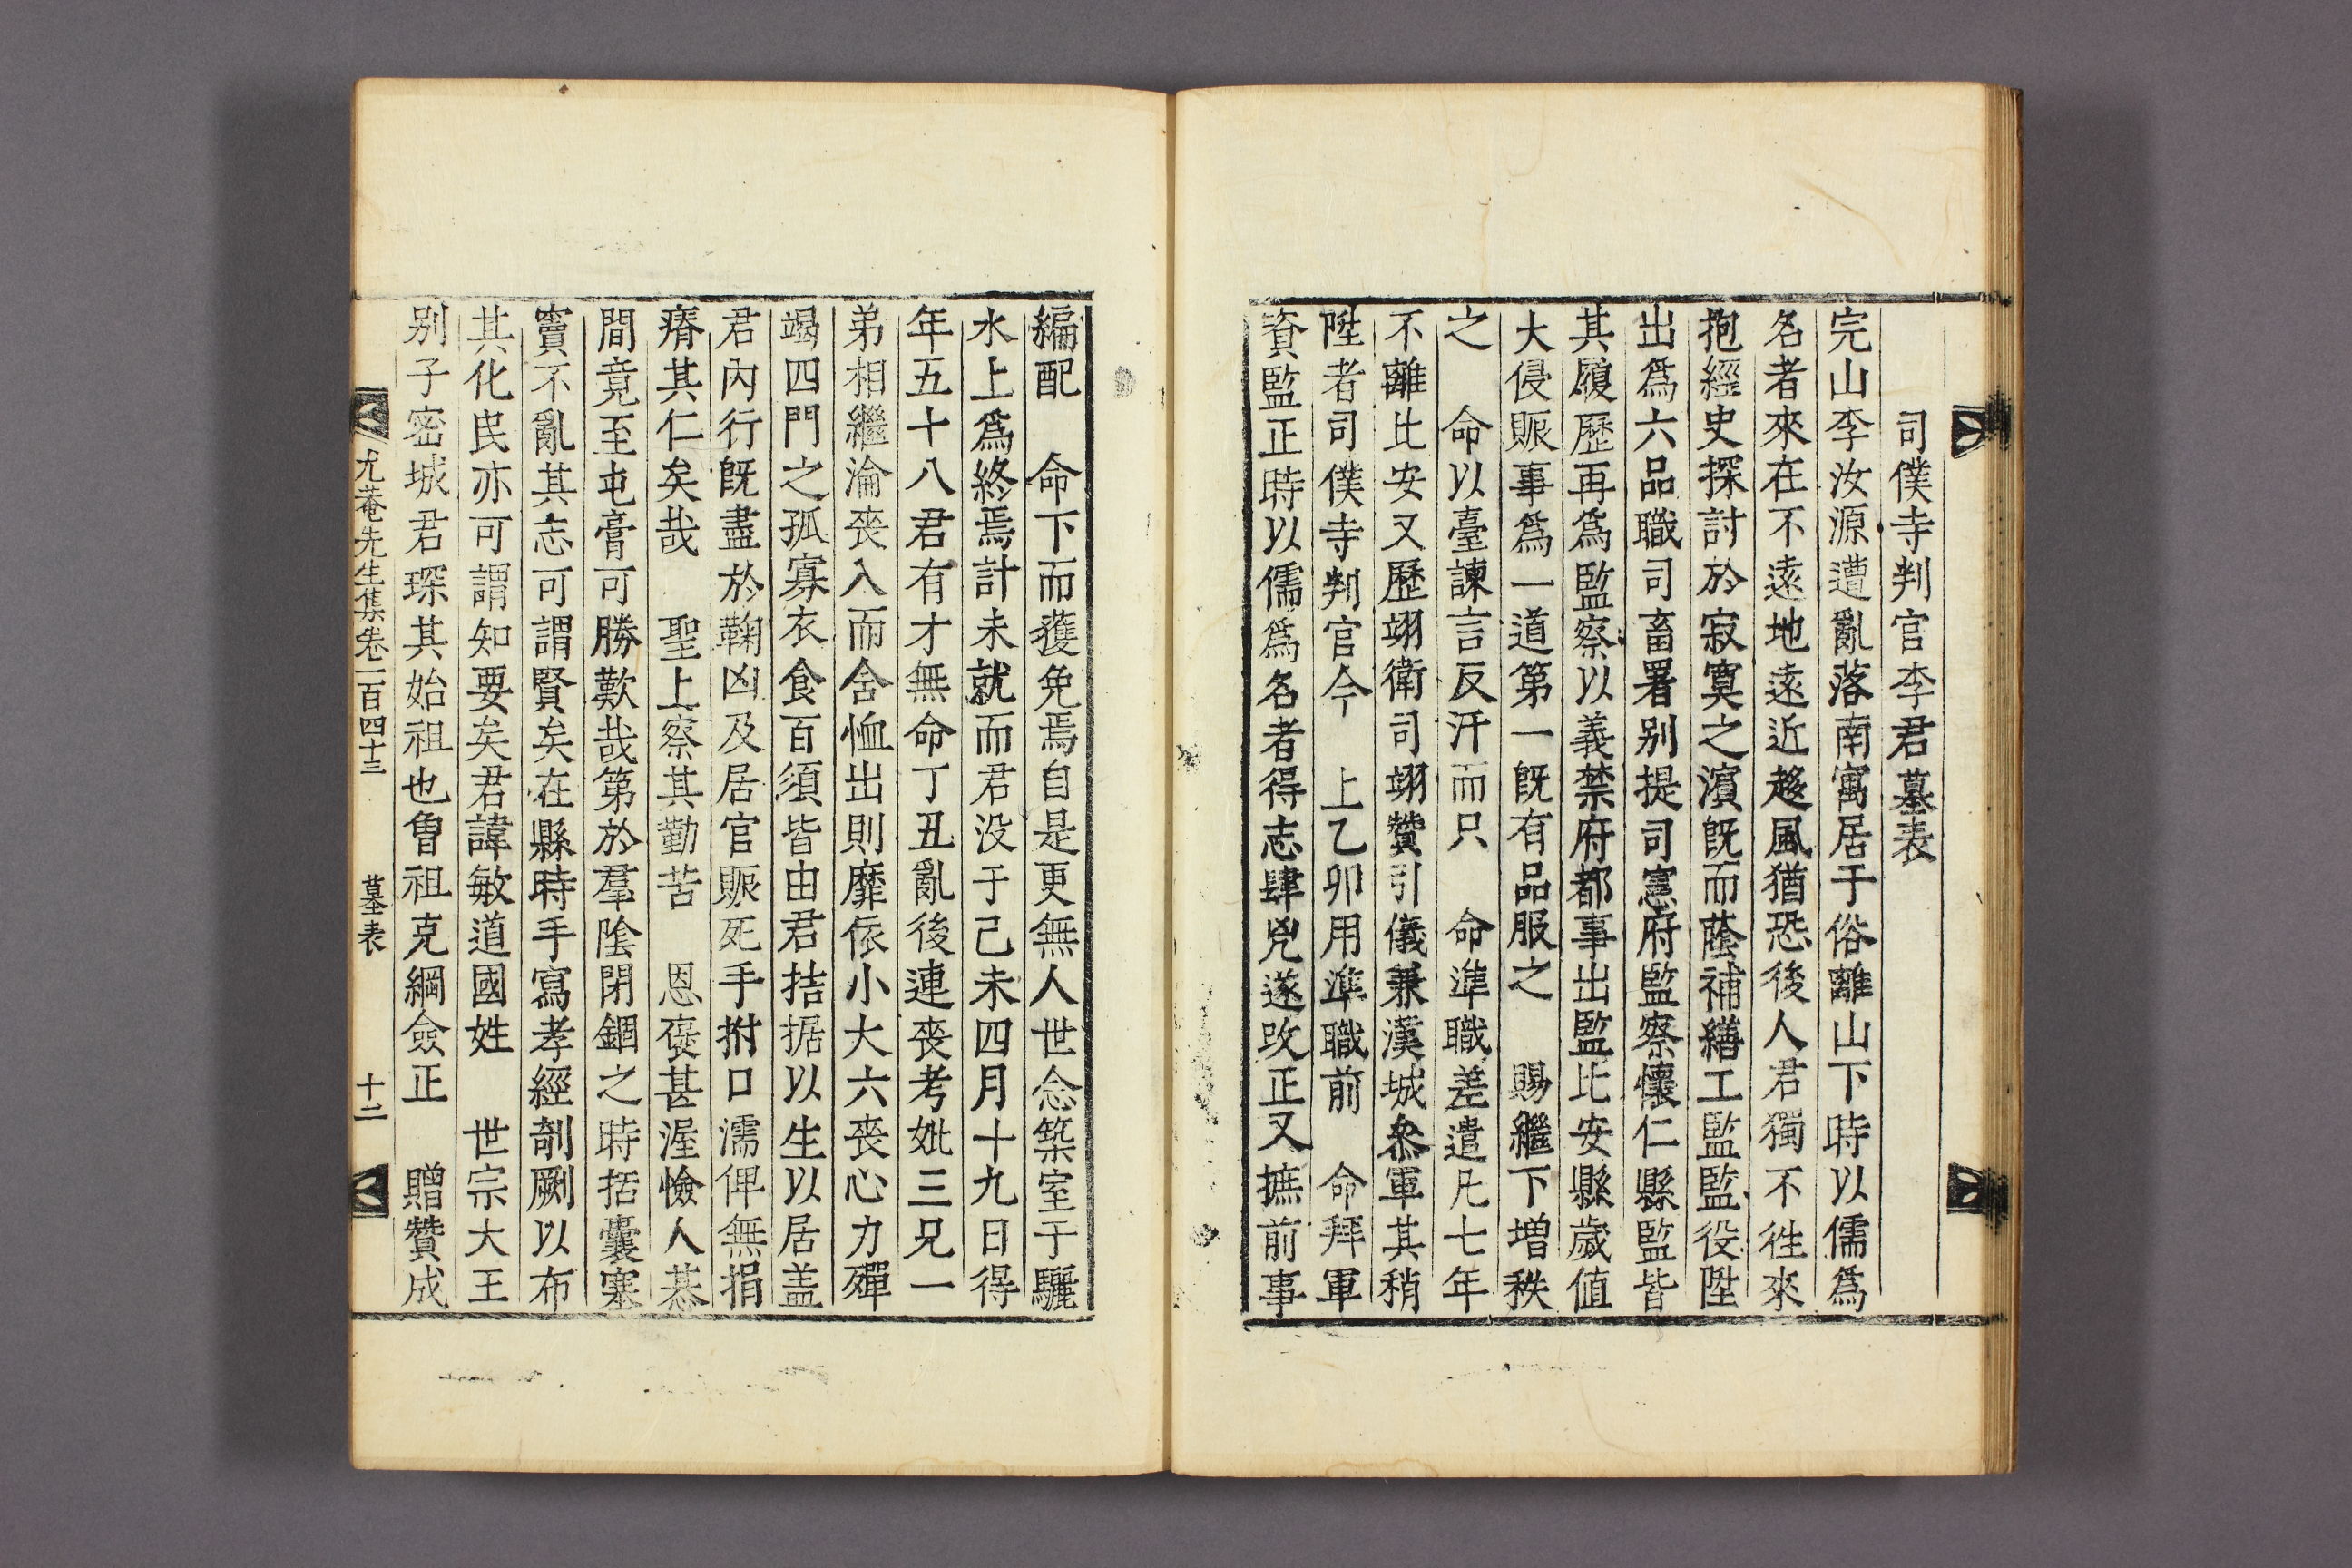 司僕寺判官李君墓表
完山李汝源遭亂落南寓居于俗離山下時以儒爲
名者來在不遠地遠近趍風猶恐後人君獨不徃來
抱經史探討於寂寞之濱旣而蔭補繕工監監役陞
出爲六品職司畜署別提司憲府監察懷仁縣監皆
其履歷再爲監察以義禁府都事出監比安縣歲値
大侵賑事爲一道第一旣有品服之　賜繼下增秩
之　命以臺諫言反汗而只　命準職差遣凡七年
不離比安又歷翊衛司翊贊引儀兼漢城叅軍其稍
陞者司僕寺判官今　上乙卯用準職前　命拜軍
資監正時以儒爲名者得志肆兇遂攺正又摭前事
編配　命下而獲免焉自是更無人世念築室于驪
水上爲終焉計未就而君没于己未四月十九日得
年五十八君有才無命丁丑亂後連喪考妣三兄一
弟相繼淪喪入而含恤出則靡依小大六喪心力殫
竭四門之孤寡衣食百須皆由君拮据以生以居盖
君內行旣盡於鞠凶及居官賑死手拊口濡俾無捐
瘠其仁矣哉　聖上察其勤苦　恩襃甚渥憸人惎
間竟至屯膏可勝歎哉第於羣陰閉錮之時括囊塞
竇不亂其志可謂賢矣在縣時手寫孝經剞劂以布
其化民亦可謂知要矣君諱敏道國姓　世宗大王
別子密城君琛其始祖也曾祖克綱僉正　贈贊成
尤菴先生集卷一百四十三　墓表　十二